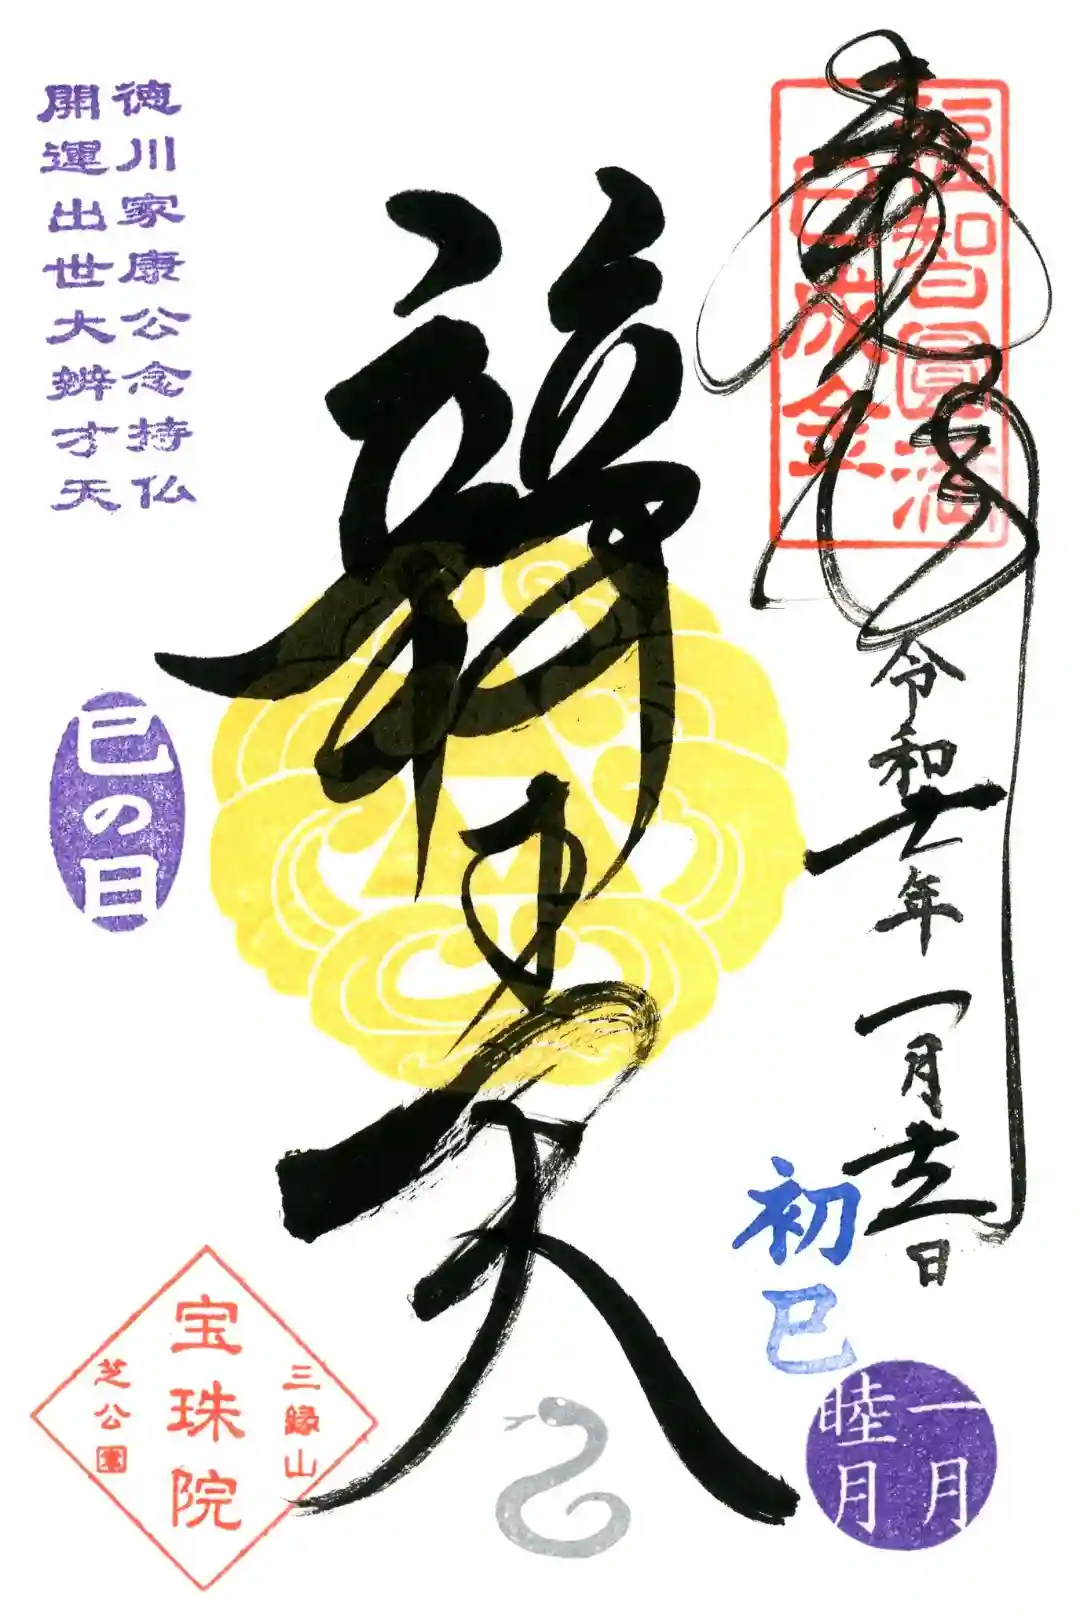 奉拝
福智圓満
巳成金
令和七年一月十二日
初巳
一月
睦月
辨才天
徳川家康公念持仏
開運出世大辨才天
巳の日
三縁山
宝珠院
芝公園